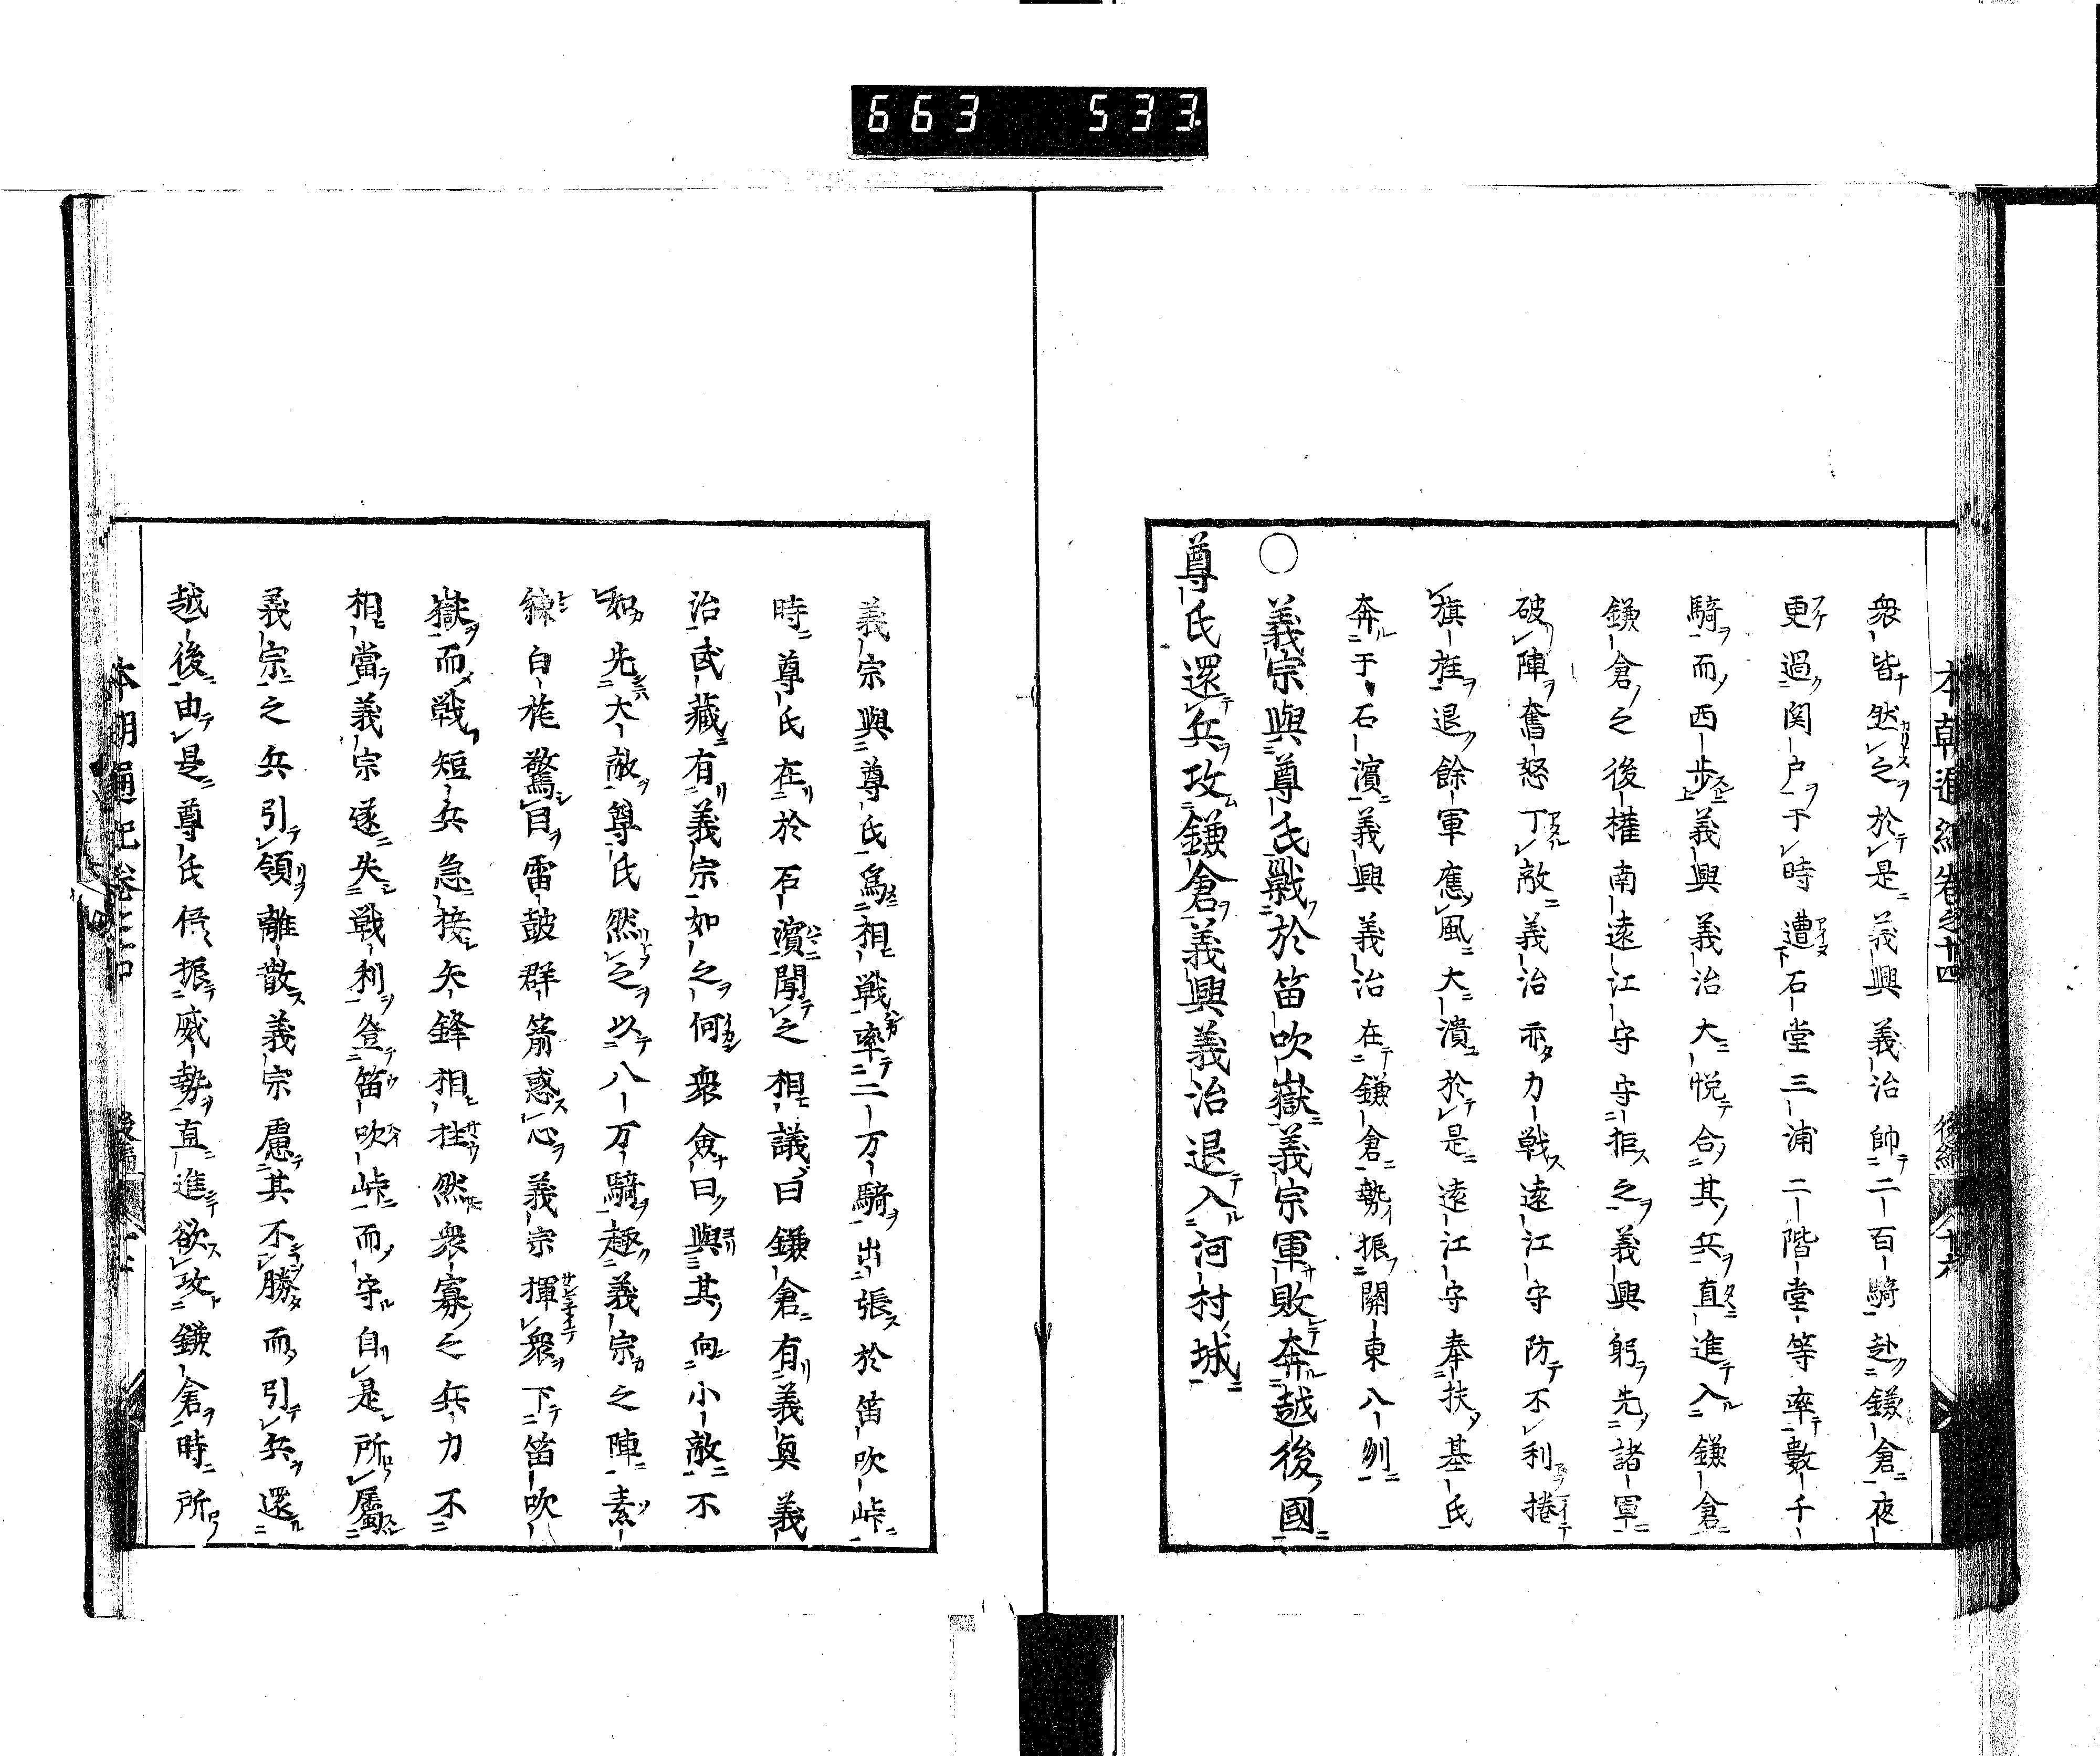 663 533
衆皆然之於是義興義治帥二百騎赴鎌倉夜
更過関戸于時遭石堂三浦二階堂等率數千
騎而西歩義興義治大悦合其兵直進入鎌倉
鎌倉之後權南遠江守守拒之義興躬先諸軍
破陣奮怒丁敵義治亦力戦遠江守防不利捲
旗旌退餘軍應風大潰於是遠江守奉扶基氏
奔于石濱義興義治在鎌倉勢振關東八州
○義宗與尊氏戰於笛吹嶽義宗軍敗奔越後國
尊氏還兵攻鎌倉義興義治退入河村城
義宗與尊氏為相戦率二万騎出張於笛吹峠
時尊氏在於石濱聞之相議曰鎌倉有義興義
治武藏有義宗如之何衆僉曰與其向小敵不
如先大敵尊氏然之以八万騎趣義宗之陣素
練白旄驚目雷鼓群箭惑心義宗揮衆下笛吹
嶽而戦短兵急接矢鋒相拄然衆寡之兵力不
相當義宗遂失戦利登笛吹峠而守自是所屬
義宗之兵引領離散義宗慮其不勝而引兵還
越後由是尊氏倍振威勢直進欲攻鎌倉時所
本朝通紀巻之十四
後編
十六